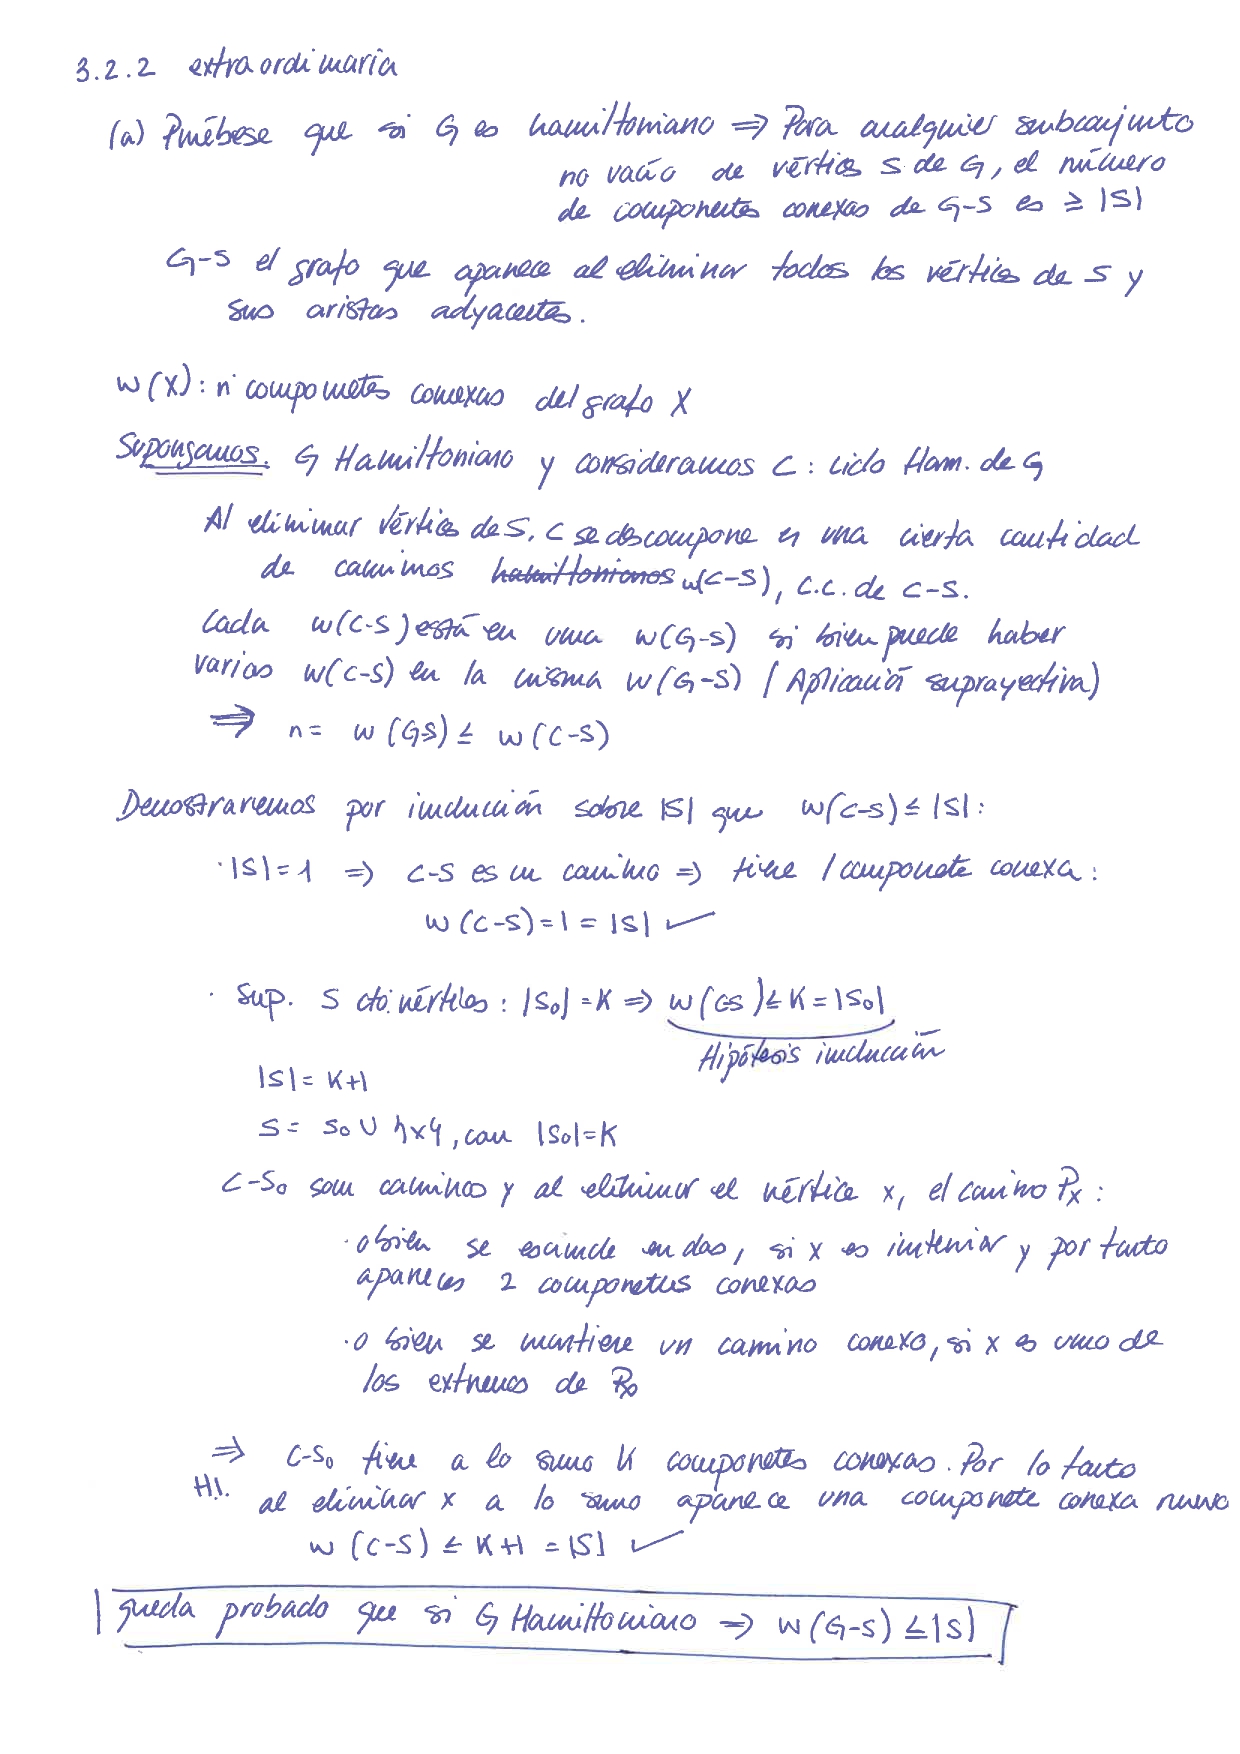 3.2.2 extraordinaria
(a) Pruébese que si G es hamiltoniano ⇒ Para cualquier subconjunto
no vacío de vértices S de G, el número
de componentes conexas de G-S es ≥ |S|
G-S el grafo que aparece al eliminar todos los vértices de S y
sus aristas adyacentes.
w(X): nº componetes conexas del grafo X
Supongamos. G Hamiltoniano y consideramos C: ciclo Ham. de G
Al eliminar vértices de S, C se descompone en una cierta cantidad
de caminos hamiltonianos w(C-S), c.c. de C-S.
Cada w(C-S) está en una w(G-S) si bien puede haber
varios w(C-S) en la misma w(G-S) (Aplicación suprayectiva)
⇒ n = w(G-S) ≤ w(C-S)
Demostraremos por inducción sobre |S| que w(C-S) ≤ |S|:
· |S|=1 ⇒ C-S es un camino ⇒ tiene 1 componete conexa:
w(C-S)=1=|S| ✓
· Sup. S cto. vértices: |S₀|=K ⇒ w(CS) ≤ K = |S₀|
Hipótesis inducción
|S|= K+1
S = S₀ ∪ {x}, con |S₀|=K
C-S₀ son caminos y al eliminar el vértice x, el camino Px:
· o bien se escinde en dos, si x es interior y por tanto
aparecen 2 componetes conexas
· o bien se mantiene un camino conexo, si x es uno de
los extremos de Px
⇒ C-S₀ tiene a lo sumo K componetes conexas. Por lo tanto
H.I. al eliminar x a lo sumo aparece una componete conexa nueva
w(C-S) ≤ K+1 = |S| ✓
queda probado que si G Hamiltoniano ⇒ w(G-S) ≤ |S|